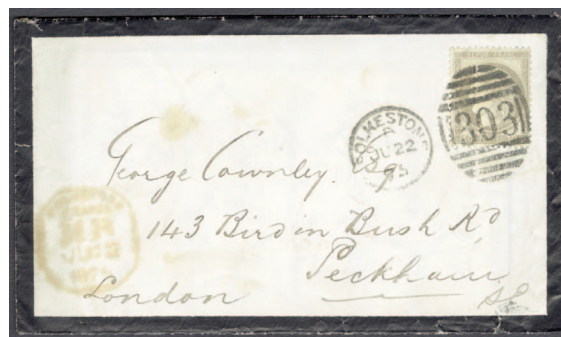 FOLKESTONE
JU 22
303
George Cownley. Esq
143 Bird in Bush Rd
Peckham
London
S.E.